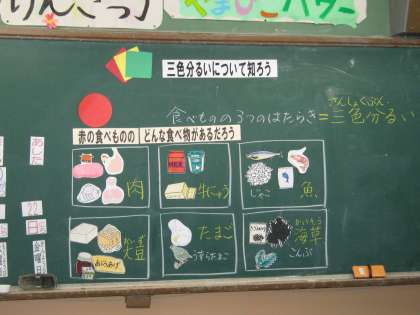 げんさつ
やまびこパワー
三色分るいについて知ろう
さんしょくぶん
食べものの3つのはたらき=三色分るい
赤の食べものの どんな食べ物があるだろう
あした
肉
MILK
牛にゅう
じゃこ
魚
9
日
金曜日
だいず
大豆
あぶらあげ
たまご
うずらたまご
かいそう
海草
こんぶ